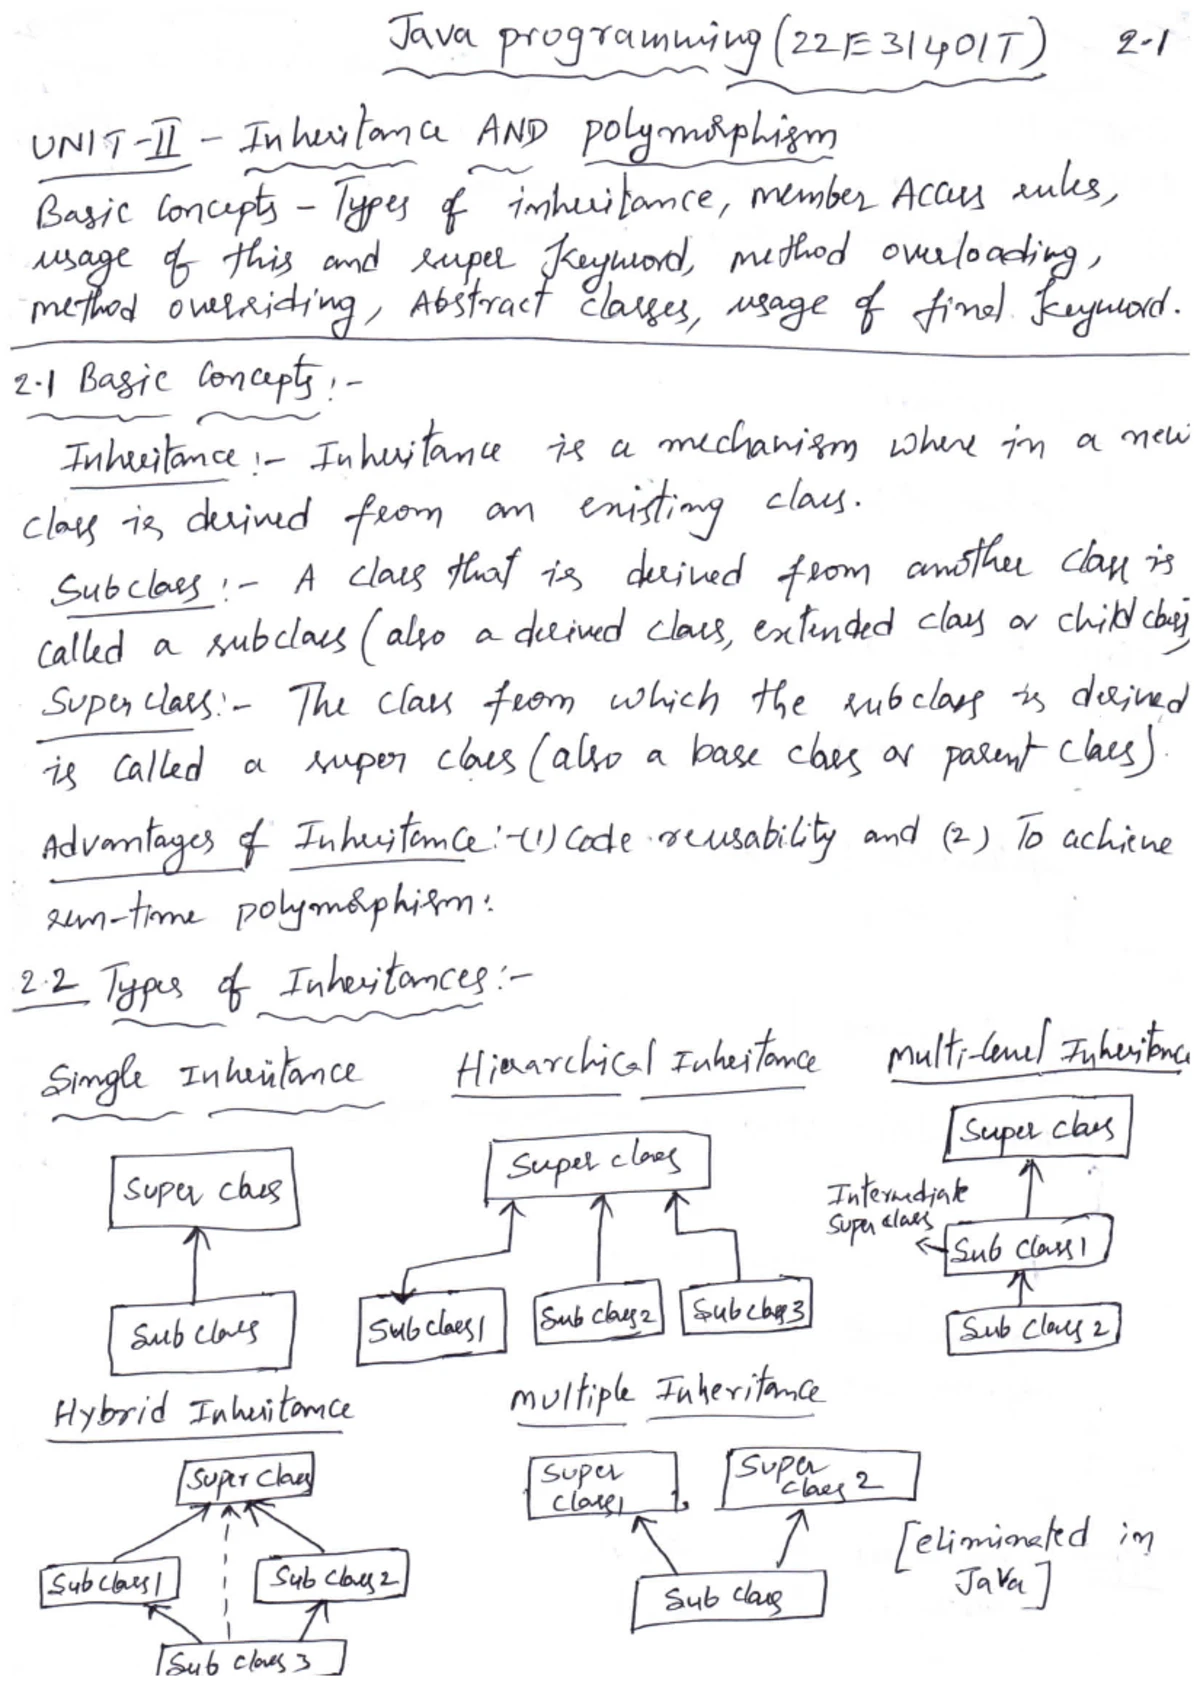 Java programming (22E31401T) 2.1
UNIT-II - Inheritance AND polymorphism
Basic Concepts - Types of inheritance, member Access rules,
usage of this and super Keyword, method overloading,
method overriding, Abstract classes, usage of final Keyword.
2.1 Basic Concepts:-
Inheritance:- Inheritance is a mechanism where in a new
class is derived from an existing class.
Subclass:- A class that is derived from another class is
called a subclass (also a derived class, extended class or child class)
Super class:- The class from which the subclass is derived
is called a super class (also a base class or parent class).
Advantages of Inheritance:-(1) Code reusability and (2) To achieve
run-time polymorphism.
2.2 Types of Inheritances:-
Single Inheritance Hierarchical Inheritance Multi-level Inheritance
Super class Super class Super class
Intermediate
Super class
Sub class 1
Sub class Sub class 1 Sub class 2 Sub class 3 Sub class 2
Hybrid Inheritance Multiple Inheritance
Super class Super
class 1 Super
class 2
[eliminated in
Java]
Sub class 1 Sub class 2 Sub class
Sub class 3